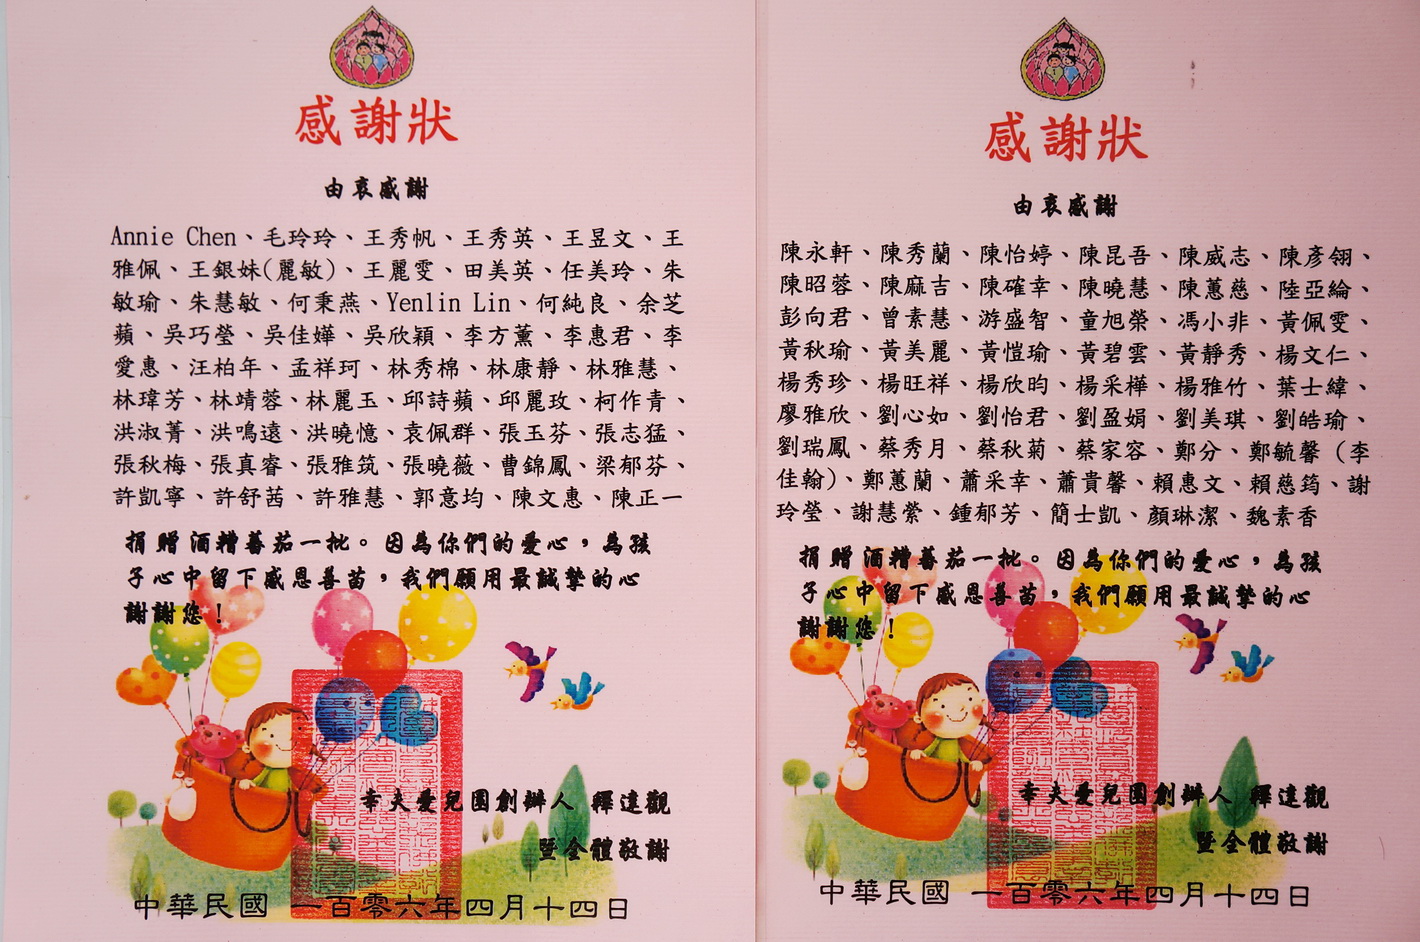 感謝狀
由衷感謝
Annie Chen、毛玲玲、王秀帆、王秀英、王昱文、王
雅佩、王銀妹(麗敏)、王麗雯、田美英、任美玲、朱
敏瑜、朱慧敏、何秉燕、Yenlin Lin、何純良、余芝
蘋、吳巧瑩、吳佳嬅、吳欣穎、李方薰、李惠君、李
愛惠、汪柏年、孟祥珂、林秀棉、林康靜、林雅慧、
林瑋芳、林靖蓉、林麗玉、邱詩蘋、邱麗玫、柯作青、
洪淑菁、洪鳴遠、洪曉憶、袁佩群、張玉芬、張志猛、
張秋梅、張真睿、張雅筑、張曉薇、曹錦鳳、梁郁芬、
許凱寧、許舒茜、許雅慧、郭意均、陳文惠、陳正一
捐贈酒糟蕃茄一批。因為你們的愛心，為孩
子心中留下感恩善苗，我們願用最誠摯的心
謝謝您！
幸夫愛兒園創辦人 釋達觀
暨全體敬謝
中華民國 一百零六年四月十四日
感謝狀
由衷感謝
陳永軒、陳秀蘭、陳怡婷、陳昆吾、陳威志、陳彥翎、
陳昭蓉、陳麻吉、陳確幸、陳曉慧、陳蕙慈、陸亞綸、
彭向君、曾素慧、游盛智、童旭榮、馮小非、黃佩雯、
黃秋瑜、黃美麗、黃愷瑜、黃碧雲、黃靜秀、楊文仁、
楊秀珍、楊旺祥、楊欣昀、楊采樺、楊雅竹、葉士緯、
廖雅欣、劉心如、劉怡君、劉盈娟、劉美琪、劉皓瑜、
劉瑞鳳、蔡秀月、蔡秋菊、蔡家容、鄭分、鄭毓馨（李
佳翰)、鄭蕙蘭、蕭采幸、蕭貴馨、賴惠文、賴慈筠、謝
玲瑩、謝慧縈、鍾郁芳、簡士凱、顏琳潔、魏素香
捐贈酒糟蕃茄一批。因為你們的愛心，為孩
子心中留下感恩善苗，我們願用最誠摯的心
謝謝您！
幸夫愛兒園創辦人 釋達觀
暨全體敬謝
中華民國 一百零六年四月十四日